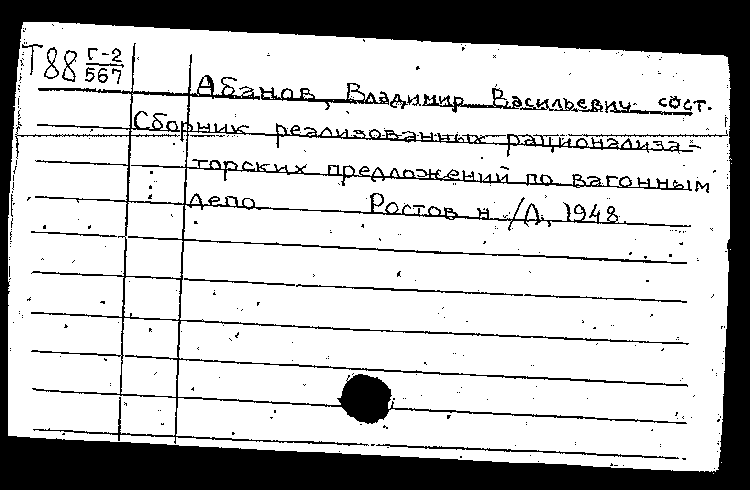 Т88 Г-2/567
Абанов, Владимир Васильевич сост.
Сборник реализованных рационализа-
торских предложений по вагонным
депо. Ростов н/Д, 1948.